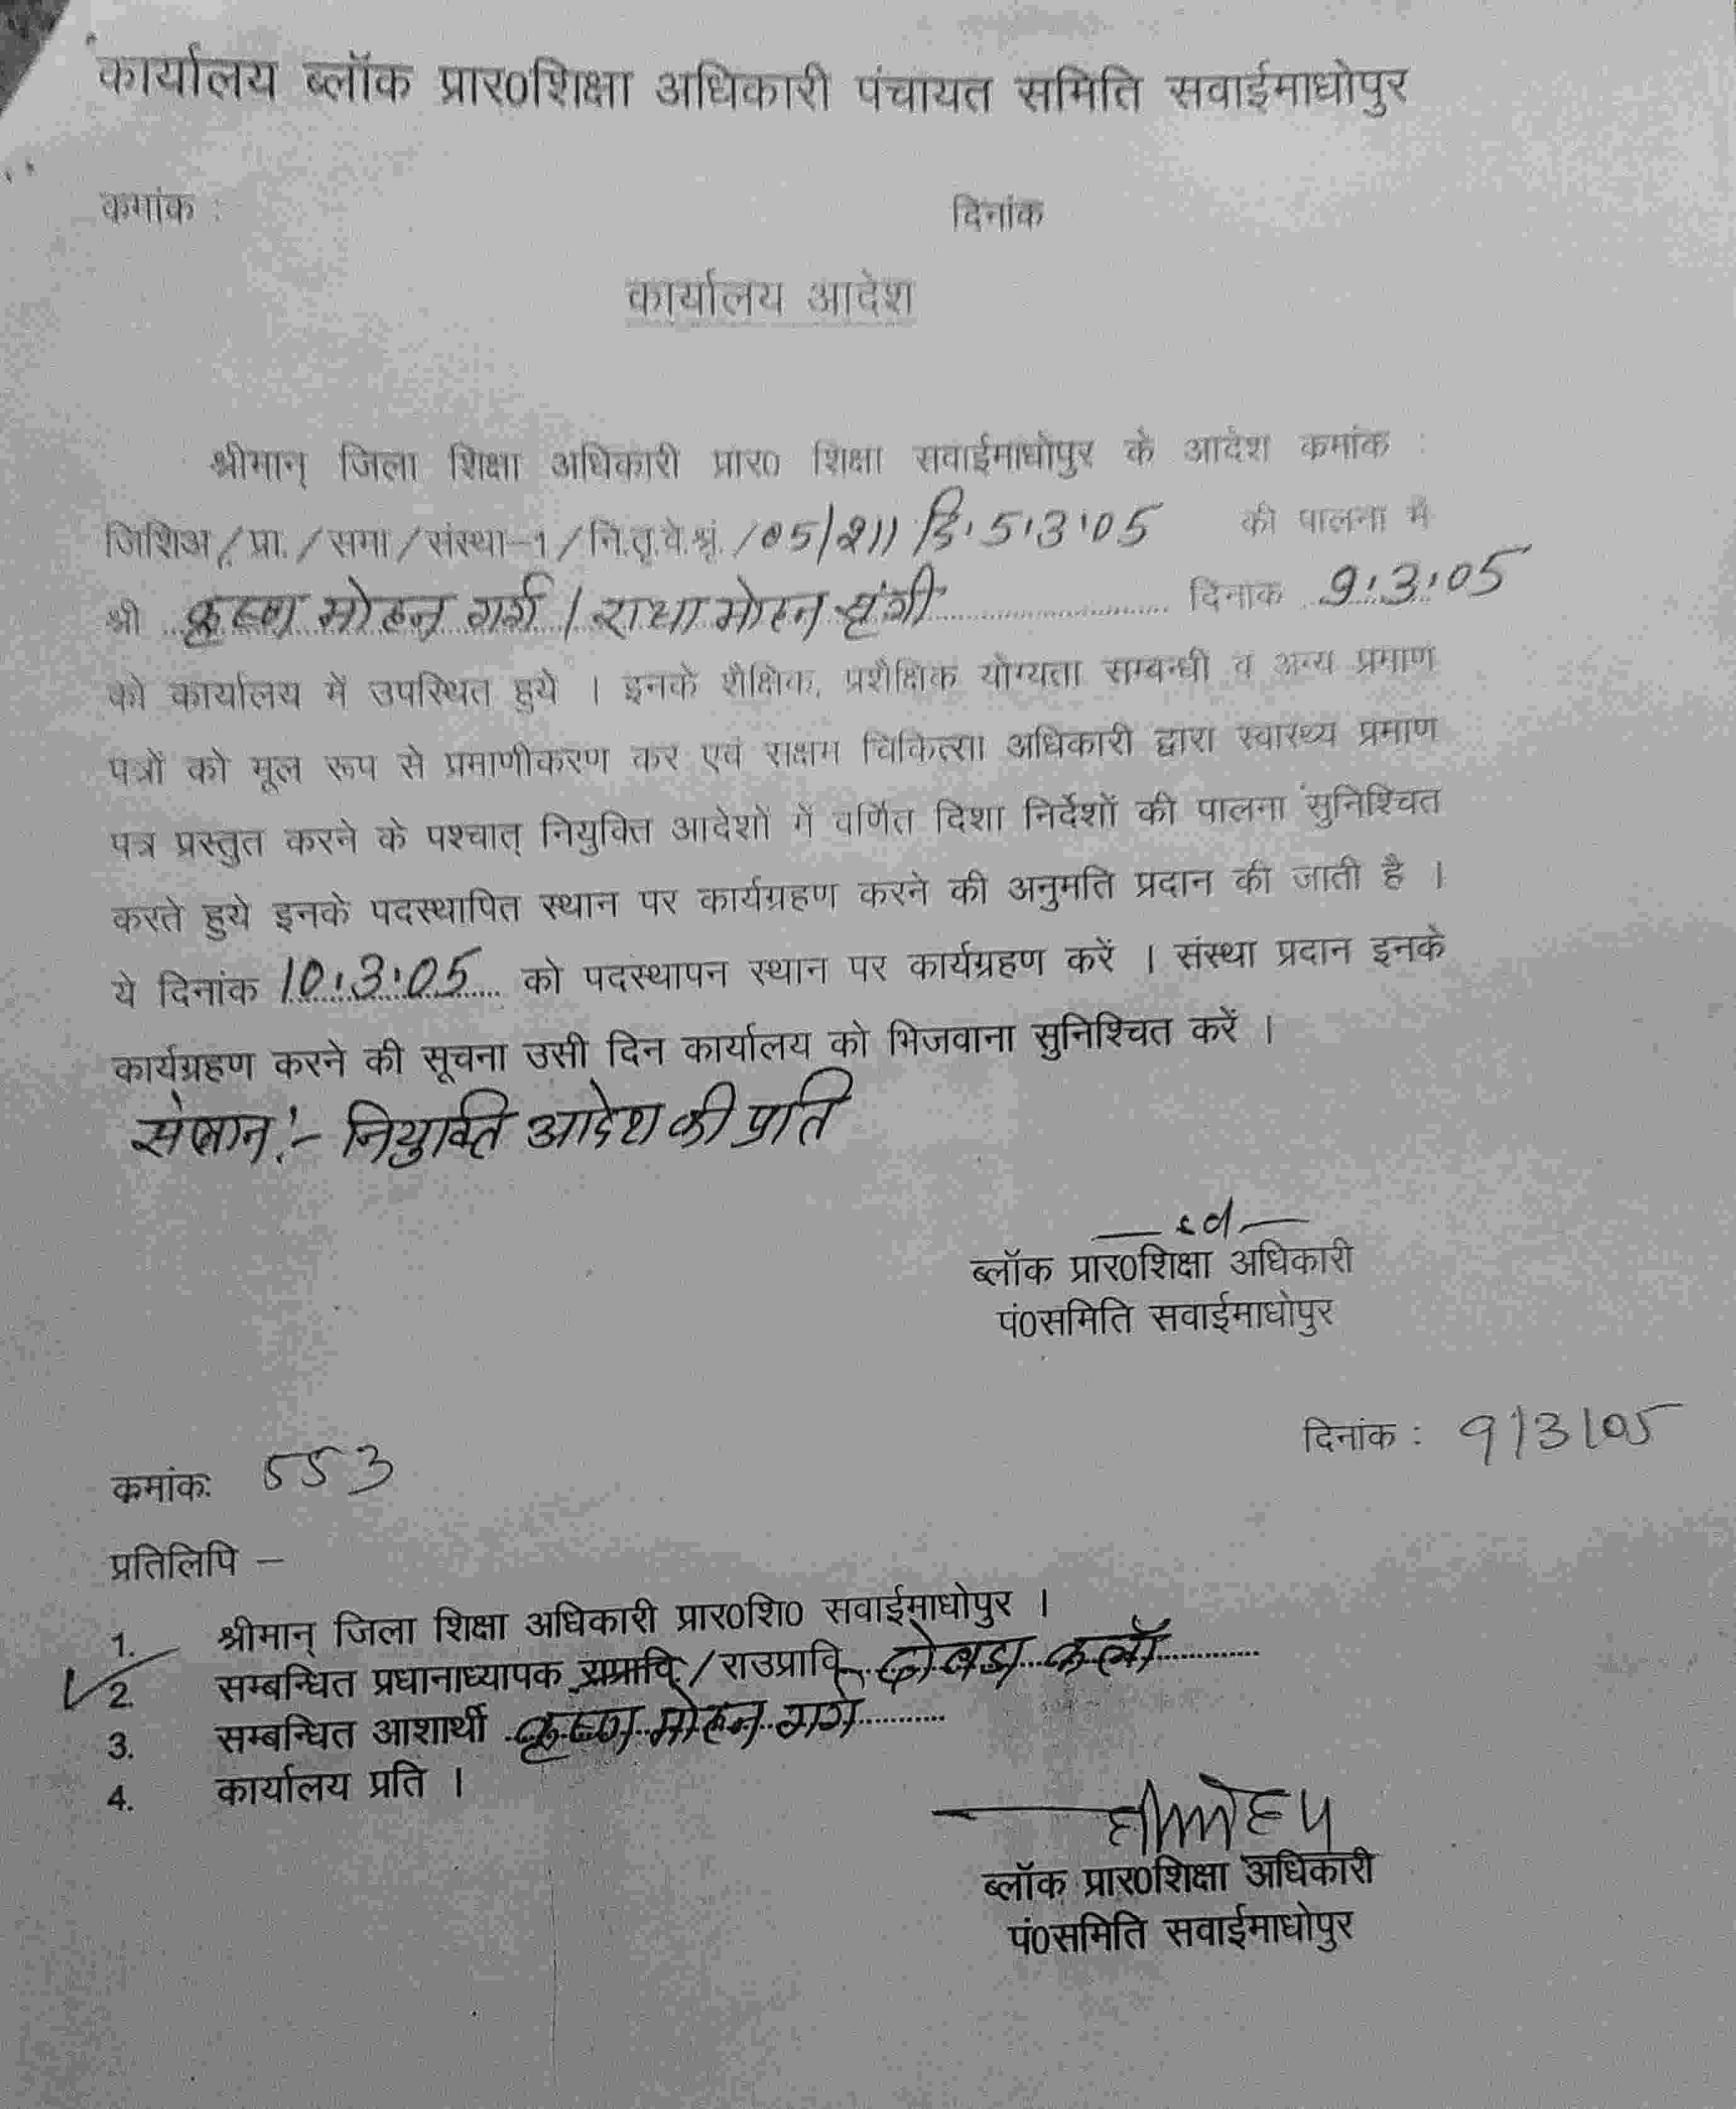 कार्यालय ब्लॉक प्रार0शिक्षा अधिकारी पंचायत समिति सवाईमाधोपुर
कमांक : दिनांक
कार्यालय आदेश
श्रीमान् जिला शिक्षा अधिकारी प्रार0 शिक्षा सवाईमाधोपुर के आदेश कमांक :
जिशिअ/प्रा./समा/संस्था-1/नि.तृ.वे.श्रृं./05/211 दि. 5.3.05 की पालना में
श्री कृष्ण मोहन गर्ग / राधा मोहन दिनांक 9.3.05
को कार्यालय में उपस्थित हुये । इनके शैक्षिक, प्रशैक्षिक योग्यता सम्बन्धी व अन्य प्रमाण
पत्रों को मूल रूप से प्रमाणीकरण कर एवं सक्षम चिकित्सा अधिकारी द्वारा स्वास्थ्य प्रमाण
पत्र प्रस्तुत करने के पश्चात् नियुक्ति आदेशों में वर्णित दिशा निर्देशों की पालना सुनिश्चित
करते हुये इनके पदस्थापित स्थान पर कार्यग्रहण करने की अनुमति प्रदान की जाती है ।
ये दिनांक 10.3.05 को पदस्थापन स्थान पर कार्यग्रहण करें । संस्था प्रदान इनके
कार्यग्रहण करने की सूचना उसी दिन कार्यालय को भिजवाना सुनिश्चित करें ।
संलग्न:- नियुक्ति आदेश की प्रति
— sd —
ब्लॉक प्रार0शिक्षा अधिकारी
पं0समिति सवाईमाधोपुर
कमांक: 553 दिनांक : 9/3/05
प्रतिलिपि —
1. श्रीमान् जिला शिक्षा अधिकारी प्रार0शि0 सवाईमाधोपुर ।
2. सम्बन्धित प्रधानाध्यापक राप्रावि/राउप्रावि कलॉ
3. सम्बन्धित आशार्थी कृष्ण मोहन गर्ग
4. कार्यालय प्रति ।
ब्लॉक प्रार0शिक्षा अधिकारी
पं0समिति सवाईमाधोपुर